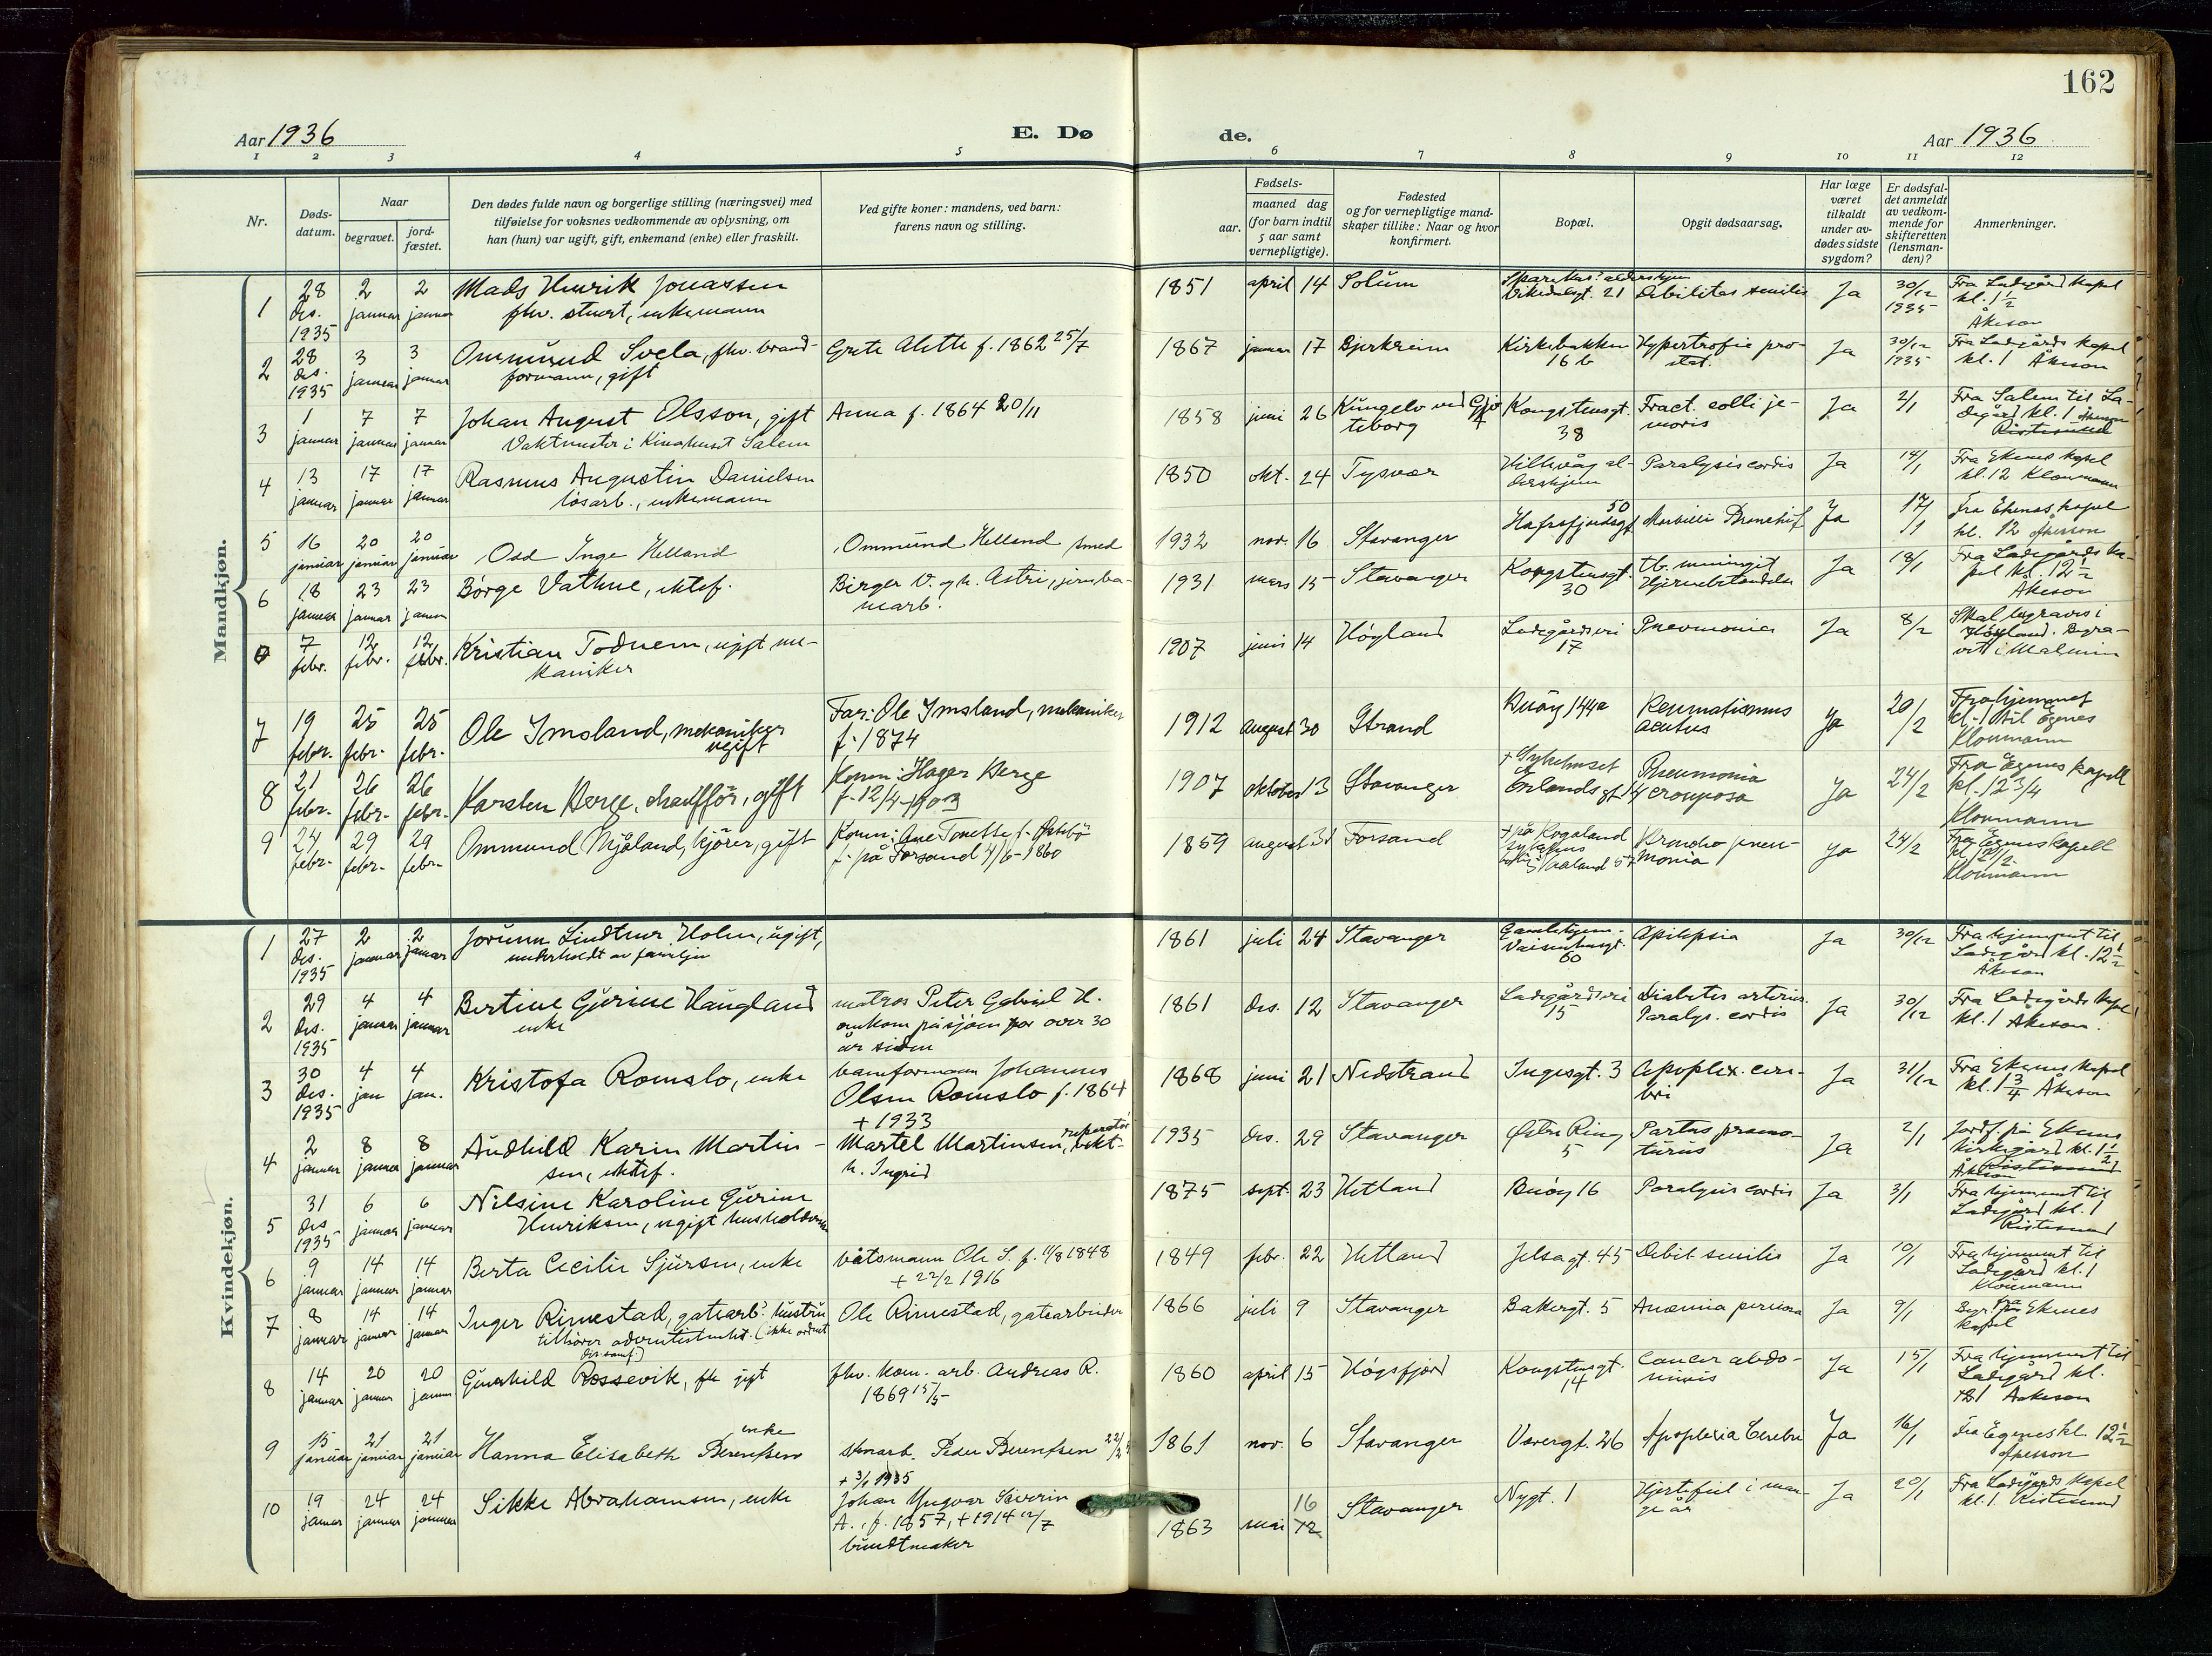 162
Aar 1936
E. Døde.
Aar 1936
1 2 3 4 5 6 7 8 9 10 11 12
Nr.
Døds-
datum.
Naar
begravet.
jord-
fæstet.
Den dødes fulde navn og borgerlige stilling (næringsvei) med
tilføielse for voksnes vedkommende av oplysning, om
han (hun) var ugift, gift, enkemand (enke) eller fraskilt.
Ved gifte koner: mandens, ved barn:
farens navn og stilling.
Fødsels-
aar.
maaned dag
(for barn indtil
5 aar samt
vernepligtige).
Fødested
og for vernepligtige mand-
skaper tillike: Naar og hvor
konfirmert.
Bopæl.
Opgit dødsaarsag.
Har læge
været
tilkaldt
under av-
dødes sidste
sygdom?
Er dødsfal-
det anmeldt
av vedkom-
mende for
skifteretten
(lensman-
den)?
Anmerkninger.
Mandkjøn.
1 28 des. 1935 2 januar 2 januar Mads Henrik Jonassen
fhv. stuert, enkemann
1851 april 14 Solum
Vikedalsgt. 21 Debilitas senilis Ja 30/12 1935
Fra Ladegård kapel
kl. 1 1/2
Åkeson
2 28 des. 1935 3 januar 3 januar Ommund Svela, fhv. brand-
formann, gift
Grete Alette f. 1862 25/7
1867 januar 17 Bjerkreim Kirkebakken
16 b
Hypertrofia pro-
stat.
Ja 30/12 1935
Fra Ladegårds kapel
kl. 1 Åkeson
3 1 januar 7 januar 7 januar Johan August Olsson, gift
Vaktmester i Kinahuset Salem
Anna f. 1864 20/11
1858 juni 26 Kungelv ved Gjø
teborg
Kongstensgt.
38
Fract. colli fe-
moris
Ja 2/1
Fra Salem til La-
degård kl. 1 Åkeson
Ristesund
4 13 januar 17 januar 17 januar Rasmus Augustin Danielsen
løsarb., enkemann
1850 okt. 24 Tysvær Hillevåg al-
dershjem
Paralysis cordis Ja 14/1
Fra Ekenes kapel
kl. 12 Kloumann
5 16 januar 20 januar 20 januar Odd Inge Helland
Ommund Helland smed
1932 nov. 16 Stavanger Hafrsfjordsgt 50
Morbilli Bronchit Ja 17/1
Fra Ekenes kapel
kl. 12 Åkesson
6 18 januar 23 januar 23 januar Børge Vathne, ektef.
Birger V. og h. Astri, jernba-
nearb.
1931 mars 15 Stavanger Kongstensgt.
30
tb. meningit
Hjernebetendelse
Ja 18/1
Fra Ladegårds ka-
pel kl. 12 1/2
Åkeson
0 7 febr. 12 febr. 12 febr. Kristian Todnem, ugift me-
kaniker
1907 juni 14 Høyland Ladegårdsvei
17
Pneumonia Ja 8/2
Skal begraves i
Høyland. Begra-
vet i Malmin
7 19 febr. 25 febr. 25 febr. Ole Imsland, mekaniker
ugift
Far: Ole Imsland, mekaniker
f. 1874
1912 august 30 Strand Buøy 144a Reumatismus
acutus
Ja 20/2
Fra hjemmet
kl. 1 til Egenes
Kloumann
8 21 febr. 26 febr. 26 febr. Karsten Berge, chaufför, gift
Konu: Hager Berge
f. 12/4-1903
1907 oktober 13 Stavanger + Sykehuset
Erlandsgt 14
Pneumonia
crouposa
Ja 24/2
Fra Egenes kapell
kl. 12 3/4
Kloumann
9 24 febr. 29 febr. 29 febr. Ommund Mjåland, kjører, gift
Konu: Ane Tonette f.
f. på Forsand 4/6-1860
1859 august 31 Forsand + på Rogaland
sykehus
Broncho pneu-
monia
Ja 24/2
Fra Egenes kapell
kl. 12 1/2
Kloumann
Kvindekjøn.
1 27 des. 1935 2 januar 2 januar Jorunn Lindtner Holm, ugift,
underholdt av familjen
1861 juli 24 Stavanger Gamlehjem-
Vaisenhusgt.
60
Epilepsia Ja 30/12
Fra hjemmet til
Ladegård kl. 12 1/2
Åkeson
2 29 des. 1935 4 januar 4 januar Bertine Gjerine Haugland
enke
matros Peter Gabriel H.
omkom på sjøen for over 30
år siden
1861 des. 12 Stavanger Ladegårdsvei
15
Diabetes arterios.
Paralys. cordis
Ja 30/12
Fra Ladegårds kapel
kl. 1 Åkeson.
3 30 des. 1935 4 jan 4 jan. Kristofa Romslo, enke
baneformann Johannes
Olsen Romslo f. 1864
+ 1933
1868 juni 21 Nedstrand Ingesgt. 3 Apoplex. cere-
bri
Ja 31/12
Fra Ekenes kapel
kl. 1 3/4 Åkeson
4 2 januar 8 januar 8 januar Audhild Karin Martin-
sen, ektef.
Martel Martinsen, reperatør
h. Ingrid
1935 des. 29 Stavanger Østre Ring
5
Partus præma-
turus
Ja 2/1
Jordf. på Ekenes
kirkegård kl. 1 1/2
Åkeson Ristesund
5 31 des 1935 6 januar 6 januar Nilsine Karoline Gurine
Henriksen, ugift husholderske
1875 sept. 23 Hetland Buøy 16 Paralysis cordis Ja 3/1
Fra hjemmet til
Ladegård kl. 1
Ristesund
6 9 januar 14 januar 14 januar Berta Cecilie Sjursen, enke
båtsmann Ole S. f. 11/8 1848
+ 22/2 1916
1849 febr. 22 Hetland Jelsagt. 45 Debil. senilis Ja 10/1
Fra hjemmet til
Ladegård kl. 1
Kloumann
7 8 januar 14 januar 14 januar Inger Rimestad, gatearb.s hustru
tilhører adventistsamf. (ikke ordnet
Ole Rimestad, gatearbeider
1866 juli 9 Stavanger Bakergt. 5 Anæmia perniciosa Ja 9/1
Begr. fra Ekenes
kapel
8 14 januar 20 januar 20 januar Gunhild Rossevik, gift
fhv. kom. arb. Andreas R.
1869 15/5
1860 april 15 Høgsfjord Kongstensgt.
14
Cancer abdo-
minis
Ja 15/1
Fra hjemmet til
Ladegård kl.
1 Åkeson
9 15 januar 21 januar 21 januar Hanna Elisabeth Berentsen enke
Peder Berentsen
+ 3/1 1935
1861 nov. 6 Stavanger Verergt. 26 Apoplexia Cerebri Ja 16/1
Fra Egenes kl. 12 1/2
Åkesson
10 19 januar 24 januar 24 januar Sikke Abrahamsen, enke
Johan Yngvar Severin
A., f. 1857, + 1914 12/7
buntmaker
1863 mai 16 12 Stavanger Nygt. 1 Hjertefeil i man-
ge år
Ja 20/1
Fra Ladegårds kapel
kl. 1 Ristesund